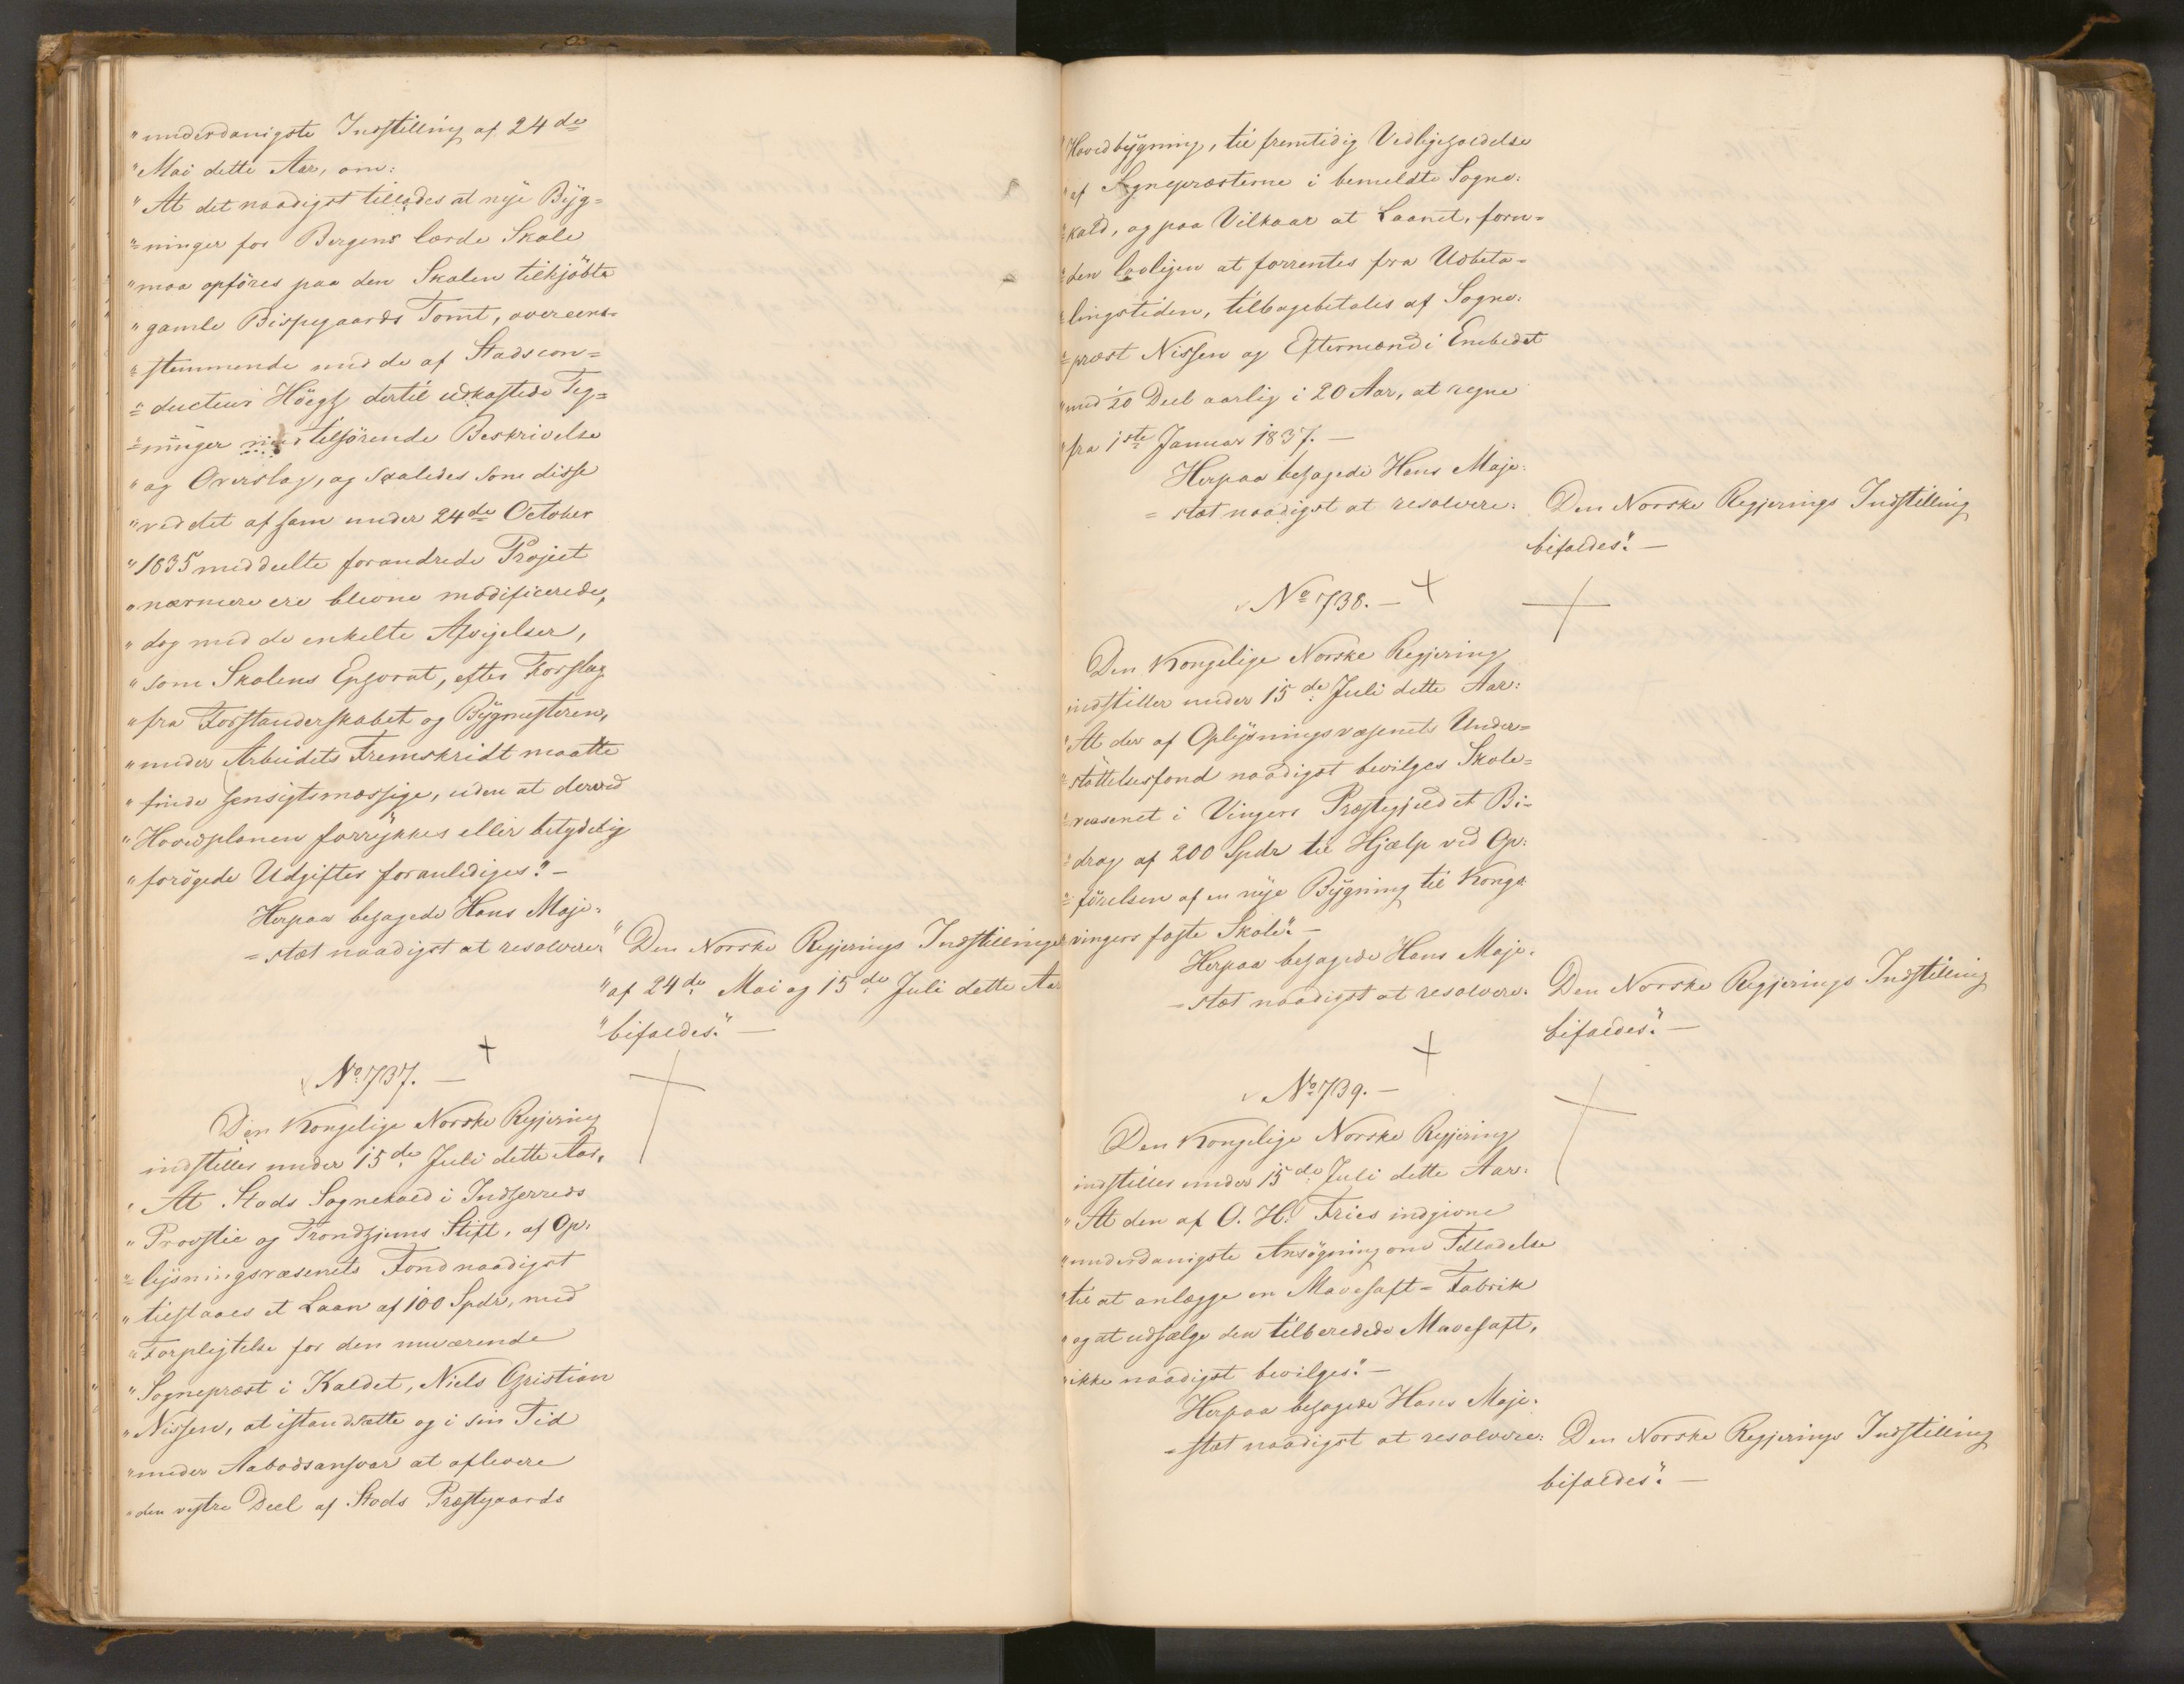 "underdanigste Indstilling af 24de
"Mai dette Aar, om:
"At det naadigst tillades at nye Byg=
"=ninger for Bergens lærde Skole
"maa opföres paa den Skolen tilkjöbte
"gamle Bispegaards Tomt, overeens=
"=stemmende med de af Stadscon=
"=ducteur Höegh dertil udkastede Teg=
"=ninger med tilhörende Beskrivelse
"og Overslag, og saaledes som disse
"ved det af ham under 24de October
"1835 meddeelte forandrede Project
"nærmere ere blevne modificerede,
"dog med de enkelte Afvigelser,
"som Skolens Ephorat, efter Forslag
"fra Forstanderskabet og Bygmesteren,
"under Arbeidets Fremskridt maatte
"finde hensigtsmæssige, uden at derved
"Hovedplanen forrykkes eller betydelig
"forögede Udgifter foranlediges." —
Herpaa behagede Hans Maje=
=stæt naadigst at resolvere: "Den Norske Regjerings Indstillinger
"af 24de Mai og 15de Juli dette Aar
"bifaldes." —
No 737. —
Den Kongelige Norske Regjering
indstiller under 15de Juli dette Aar,
"At Stods Sognekald i Indherreds
"Provstie og Trondhjems Stift, af Op=
"=lysningsvæsenets Fond naadigst
"tilstaaes et Laan af 100 Spdr, med
"Forpligtelse for den nuværende
"Sognepræst i Kaldet, Niels Christian
"Nissen, at istandsætte og i sin Tid
"under Aabodsansvar at aflevere
"den vestre Deel af Stods Præstegaards
"Hovedbygning, til fremtidig Vedligeholdelse
"af Sognepræsterne i bemeldte Sogne=
"=kald, og paa Vilkaar at Laanet, foru=
"=den lovligen at forrentes fra Udbeta=
"=lingstiden, tilbagebetales af Sogne=
"=præst Nissen og Eftermænd i Embedet
"med 1/20 Deel aarlig i 20 Aar, at regne
"fra 1ste Januar 1837. —
Herpaa behagede Hans Maje=
=stæt naadigst at resolvere: Den Norske Regjerings Indstilling
bifaldes." —
No 738. —
Den Kongelige Norske Regjering
indstiller under 15de Juli dette Aar:
"At der af Oplysningsvæsenets Under=
"=stöttelsesfond naadigst bevilges Skole=
"=væsenet i Vingers Præstegjeld et Bi=
"=drag af 200 Spdr til Hjælp ved Op=
"=förelsen af en nye Bygning til Kongs=
vingers faste Skole." —
Herpaa behagede Hans Maje=
=stæt naadigst at resolvere: Den Norske Regjerings Indstilling
bifaldes." —
No 739. —
Den Kongelige Norske Regjering
indstiller under 15de Juli dette Aar:
"At den af O. H. Fries indgivne
"underdanigste Ansögning om Tilladelse
"til at anlægge en Mavesaft=Fabrik
"og at udsælge den tilberedede Mavesaft,
"ikke naadigst bevilges." —
Herpaa behagede Hans Maje=
=stæt naadigst at resolvere: Den Norske Regjerings Indstilling
bifaldes." —